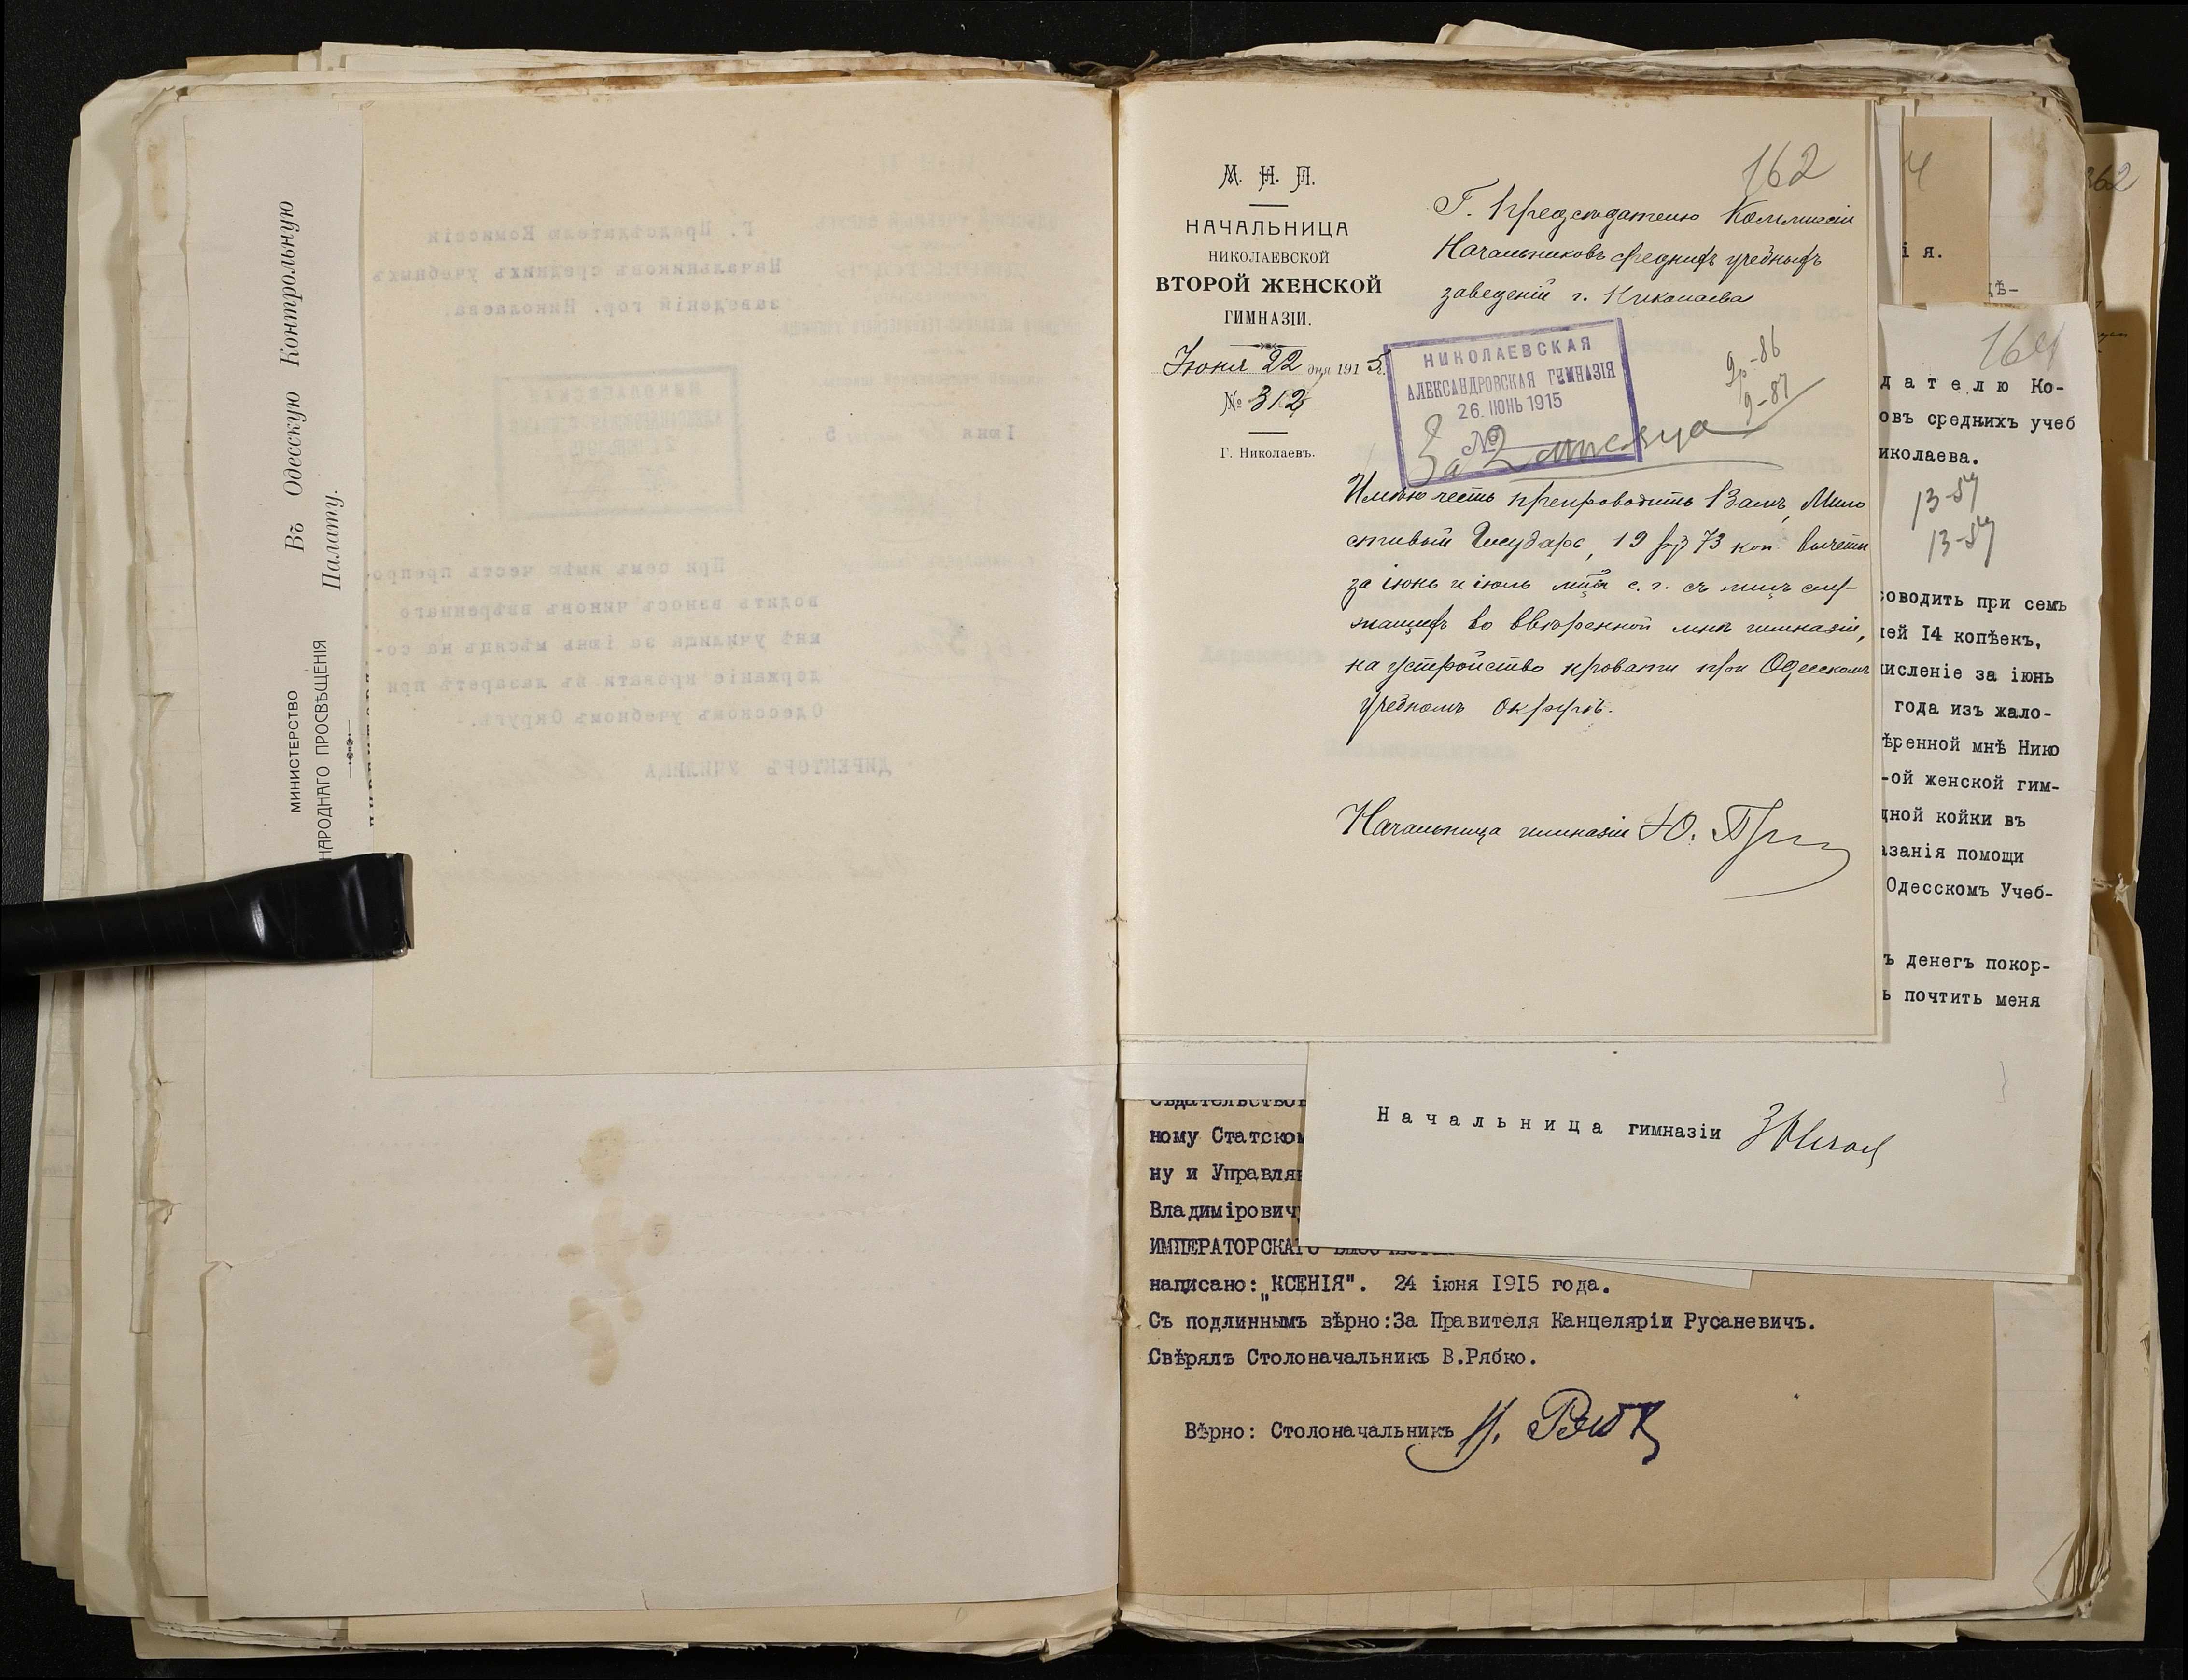 МИНИСТЕРСТВО
НАРОДНАГО ПРОСВѢЩЕНІЯ
Въ Одесскую Контрольную
Палату.
162
М. Н. П.
НАЧАЛЬНИЦА
НИКОЛАЕВСКОЙ
ВТОРОЙ ЖЕНСКОЙ
ГИМНАЗІИ.
Іюня 22 дня 1915 г.
№ 312
Г. Николаевъ.
Г. Предсѣдателю Коммиссіи
Начальниковъ среднихъ учебныхъ
заведеній г. Николаева
НИКОЛАЕВСКАЯ
АЛЕКСАНДРОВСКАЯ ГИМНАЗІЯ
26. ІЮНЬ 1915
№
9-86
9-87
За 2 месяца
Имѣю честь препроводить Вамъ, Мило
стивый Государь, 19 р. 73 коп. вычеты
за іюнь и іюль мца с. г. съ лицъ слу-
жащихъ во ввѣренной мнѣ гимназіи,
на устройство кровати при Одесскомъ
Учебномъ Округѣ.
Начальница гимназіи Ю.
164
дателю Ко-
овъ среднихъ учеб
иколаева.
13-57
13-57
оводить при семъ
лей 14 копѣекъ,
исленіе за іюнь
года изъ жало-
ѣренной мнѣ Нико
-ой женской гим-
дной койки въ
азанія помощи
Одесскомъ Учеб-
ъ денегъ покор-
ь почтить меня
Начальница гимназіи
ному Статском
ну и Управля
Владимірович
ИМПЕРАТОРСКАГО
написано: „КСЕНІЯ". 24 іюня 1915 года.
Съ подлиннымъ вѣрно:За Правителя Канцеляріи Русаневичъ.
Свѣрялъ Столоначальникъ В.Рябко.
Вѣрно: Столоначальникъ
362